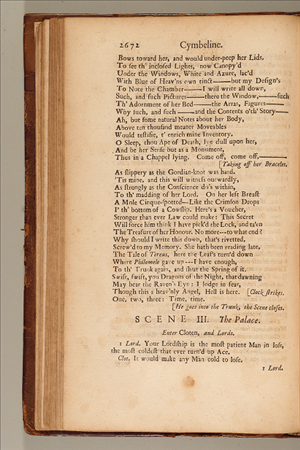 2672 Cymbeline.
Bows toward her, and would under-peep her Lids.
To see th' inclosed Lights, now Canopy'd
Under the Windows, White and Azure, lac'd
With Blue of Heav'ns own tinct——but my Design's
To Note the Chamber——I will write all down,
Such, and such Pictures——there the Window,——such
Th' Adornment of her Bed——the Arras, Figures——
Why such, and such——and the Contents o'th' Story——
Ah, but some natural Notes about her Body,
Above ten thousand meaner Moveables
Would testifie, t' enrich mine Inventory.
O Sleep, thou Ape of Death, lye dull upon her,
And be her Sense but as a Monument,
Thus in a Chappel lying. Come off, come off,——
[Taking off her Bracelet.
As slippery as the Gordian-knot was hard.
'Tis mine, and this will witness outwardly,
As strongly as the Conscience do's within,
To th' madding of her Lord. On her left Breast
A Mole Cinque-spotted—Like the Crimson Drops
I' th' bottom of a Cowslip. Here's a Voucher,
Stronger than ever Law could make: This Secret
Will force him think I have pick'd the Lock, and ta'en
The Treasure of her Honour. No more—to what end?
Why should I write this down, that's rivetted,
Screw'd to my Memory. She hath been reading late,
The Tale of Tereus, here the Leaf's turn'd down
Where Philomele gave up—I have enough,
To th' Trunk again, and shut the Spring of it.
Swift, swift, you Dragons of the Night, that dawning
May bear the Raven's Eye: I lodge in fear,
Though this a heav'nly Angel, Hell is here. [Clock strikes.
One, two, three: Time, time.
[He goes into the Trunk, the Scene closes.
SCENE III. The Palace.
Enter Cloten, and Lords.
1 Lord. Your Lordship is the most patient Man in loss,
the most coldest that ever turn'd up Ace.
Clo. It would make any Man cold to lose.
1 Lord.